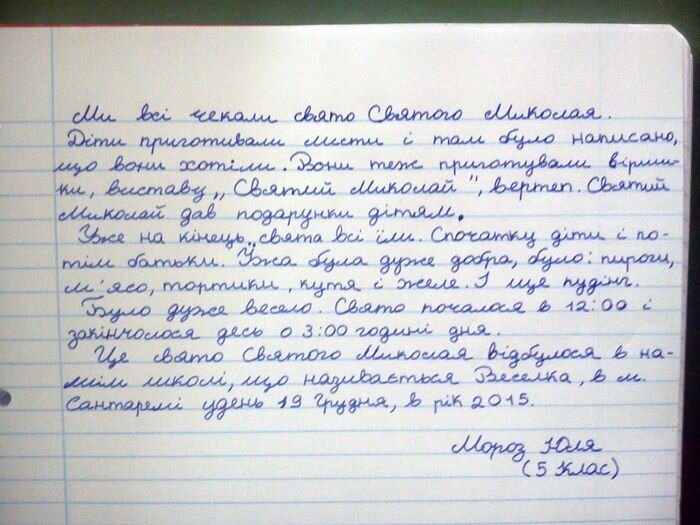 Ми всі чекали свято Святого Миколая.
Діти приготивали листи і там було написано,
що вони хотіли. Вони теж приготували вірши-
ки, виставу „Святий Миколай", вертеп. Святий
Миколай дав подарунки дітям.
Уже на кінець свята всі їли. Спочатку діти і по-
тім батьки. Їжа була дуже добра, було: пироги,
м'ясо, тортики, кутя і желе. І ще пудінг.
Було дуже весело. Свято почалося в 12:00 і
закінчолося десь о 3:00 годині дня.
Це свято Святого Миколая відбулося в на-
шій школі, що називається Веселка, в м.
Сантаремі удень 19 Грудня, в рік 2015.
Мороз Юля
(5 Клас)